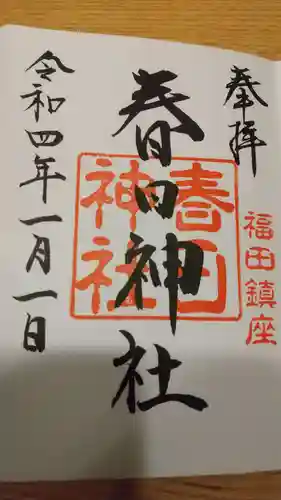 奉拝
福田鎮座
春日神社
春日神社
令和四年一月一日